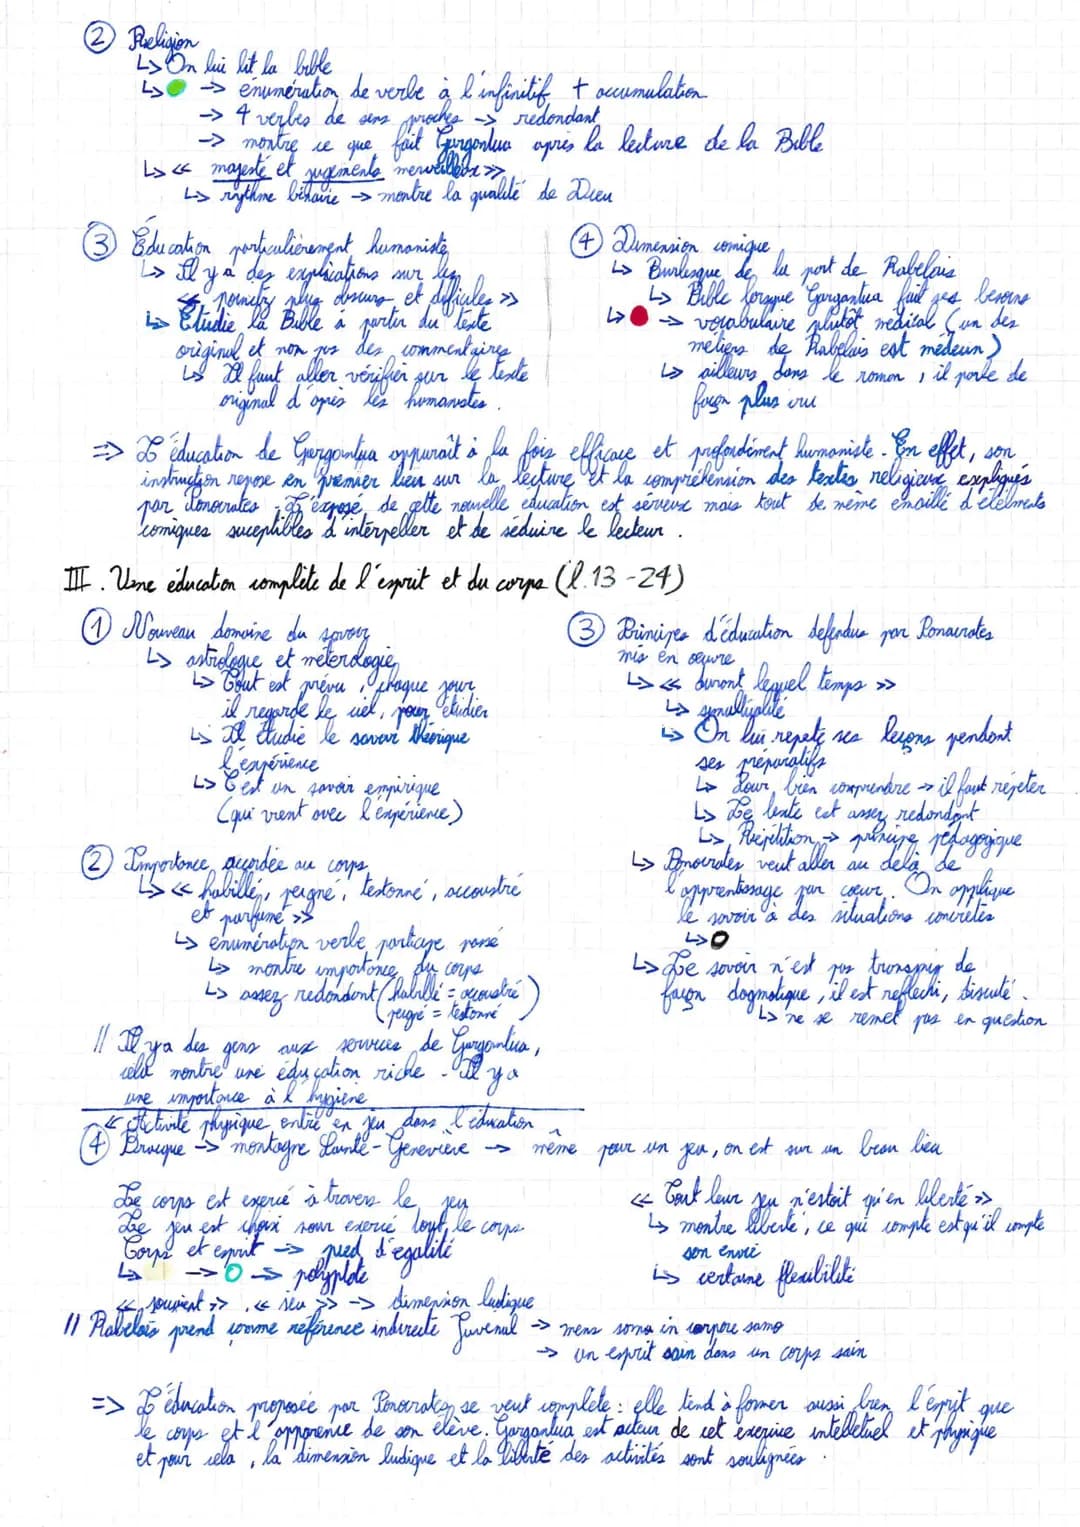 ② Religion
↳ On lui lit la bible
↳ → énumération de verbe à l'infinitif + accumulation
→ 4 verbes de sens proches → redondant
→ montre ce que fait Gargantua après la lecture de la Bible
↳ « majesté et jugements merveilleux »
↳ rythme binaire → montre la qualité de Dieu
③ Éducation particulièrement humaniste
↳ Il y a des explications sur les
« poinctz plus obscurs et difficiles »
↳ Etudie la Bible à partir du texte
original et non pas des commentaires
↳ Il faut aller vérifier sur le texte
original d'après les humanistes.
④ Dimension comique
↳ Burlesque de la part de Rabelais
↳ Bible lorsque Gargantua fait ses besoins
↳ → vocabulaire plutôt médical (un des
métiers de Rabelais est médecin)
↳ ailleurs dans le roman, il parle de
façon plus cru
⇒ L'éducation de Gargantua apparaît à la fois efficace et profondément humaniste. En effet, son
instruction repose en premier lieu sur la lecture et la compréhension des textes religieux expliqués
par Ponocrates. L'exposé de cette nouvelle éducation est sérieux mais tout de même émaillé d'éléments
comiques suceptibles d'interpeller et de séduire le lecteur.
III. Une éducation complète de l'esprit et du corps (l.13-24)
① Nouveau domaine du savoir
↳ astrologie et météorologie
↳ Tout est prévu, chaque jour
il regarde le ciel, pour étudier
↳ Il étudie le savoir théorique
l'expérience
↳ C'est un savoir empirique
(qui vient avec l'expérience)
② Importance accordée au corps
↳ « habillé, peigné, testonné, accoustré
et parfumé »
↳ énumération verbe participe passé
↳ montre importance du corps
↳ assez redondant (habillé = accoustré
peigné = testonné)
// Il y a des gens aux services de Gargantua,
cela montre une éducation riche. Il y a
une importance à l'hygiène
③ Principes d'éducation défendus par Ponocrates
mis en oeuvre
↳ « durant lequel temps »
↳ simultanéité
↳ On lui répète ses leçons pendant
ses préparatifs
↳ Pour bien comprendre → il faut répéter
↳ Le texte est assez redondant
↳ Répétition → principe pédagogique
↳ Ponocrates veut aller au delà de
l'apprentissage par coeur. On applique
le savoir à des situations concrètes
↳
↳ Le savoir n'est pas transmis de
façon dogmatique, il est réfléchi, discuté.
↳ ne se remet pas en question
Activité physique entre en jeu dans l'éducation
④ Bracque → montagne Sainte-Geneviève → même pour un jeu, on est sur un beau lieu
Le corps est exercé à travers le jeu
Le jeu est choisi pour exercé tout le corps
Corps et esprit → pied d'égalité
↳ → → polyptote
« jouaient », « jeu » → dimension ludique
« Tout leur jeu n'estoit qu'en liberté »
↳ montre liberté, ce qui compte est qu'il compte
son envie
↳ certaine flexibilité
// Rabelais prend comme référence indirecte Juvenal → mens sana in corpore sano
→ un esprit sain dans un corps sain
=> L'éducation proposée par Ponocrates se veut complète : elle tend à former aussi bien l'esprit que
le corps et l'apparence de son élève. Gargantua est acteur de cet exercice intellectuel et physique
et pour cela, la dimension ludique et la liberté des activités sont soulignées.